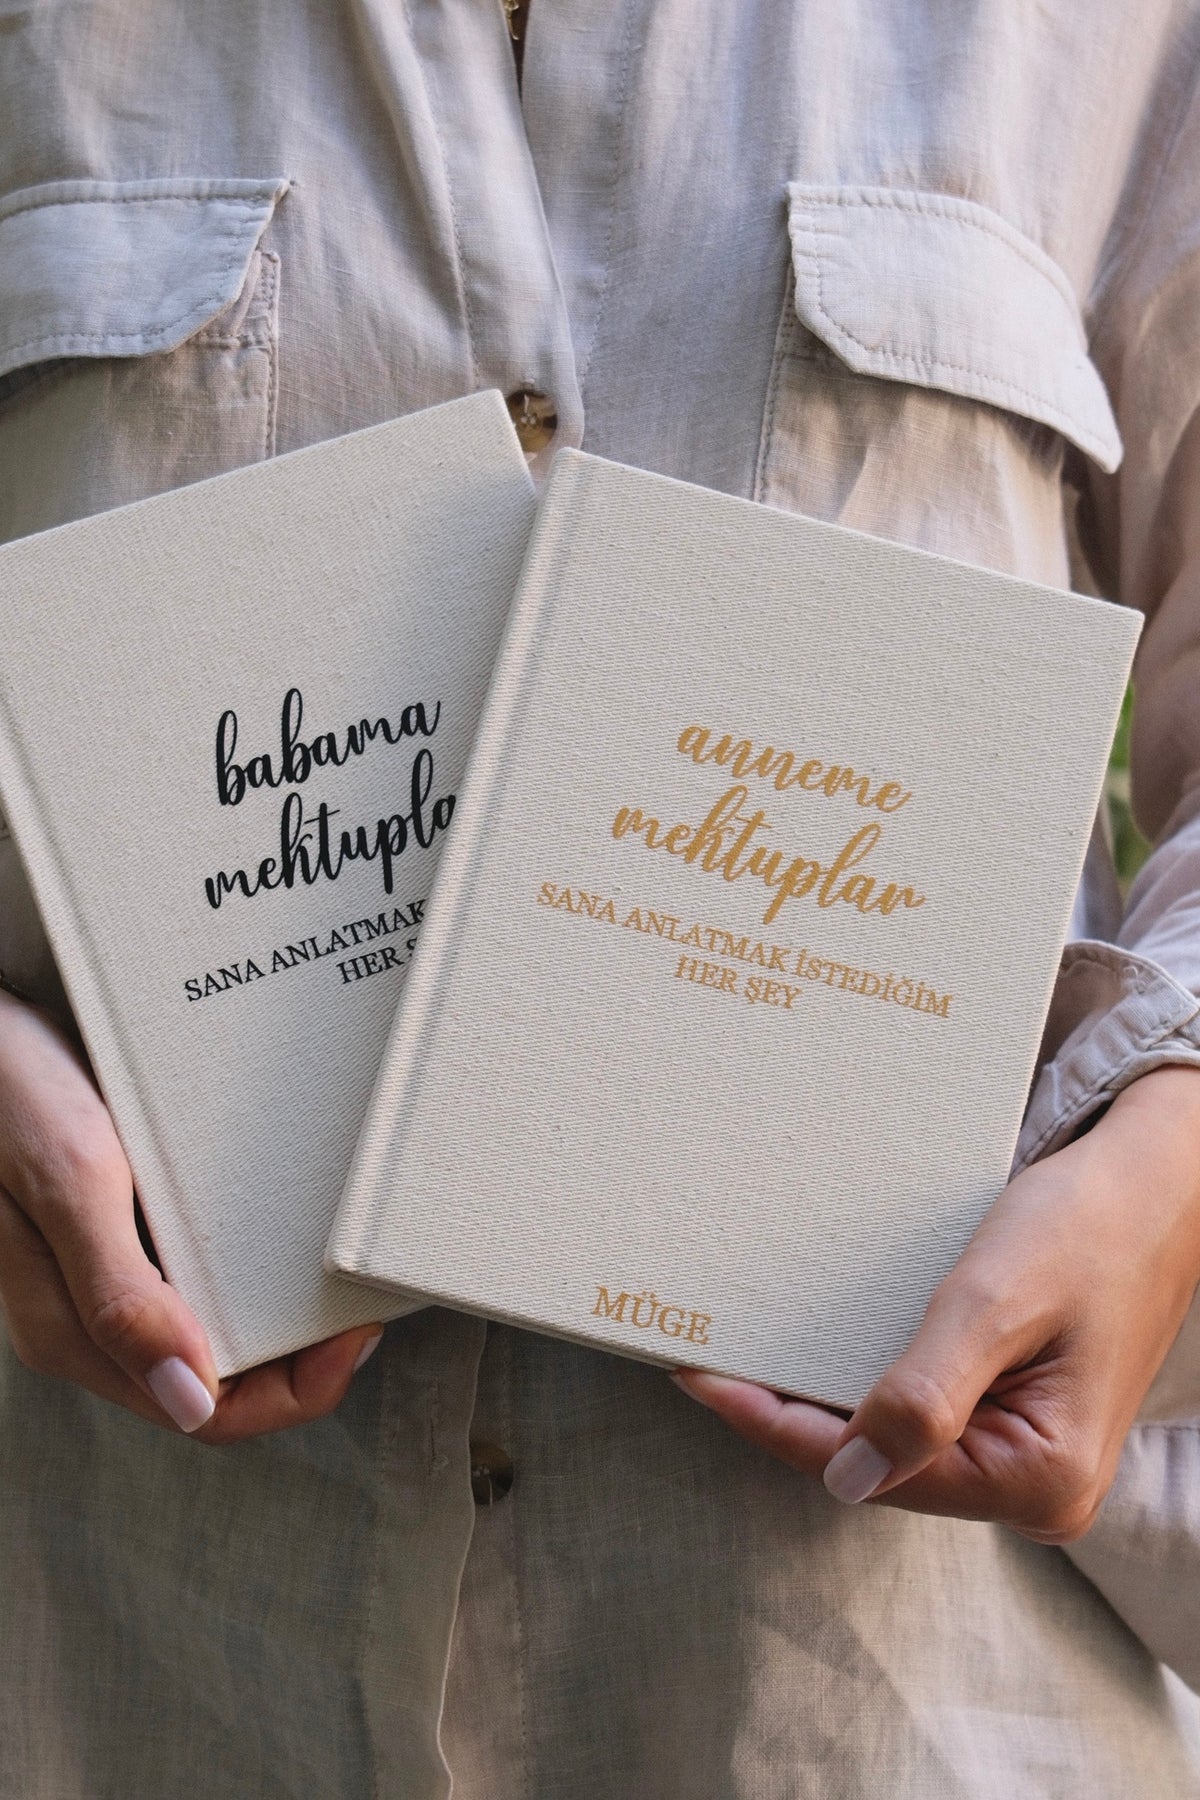 babama
SANA ANLATMAK
HER
anneme
mektuplar
SANA ANLATMAK İSTEDİĞİM
HER ŞEY
MÜGE